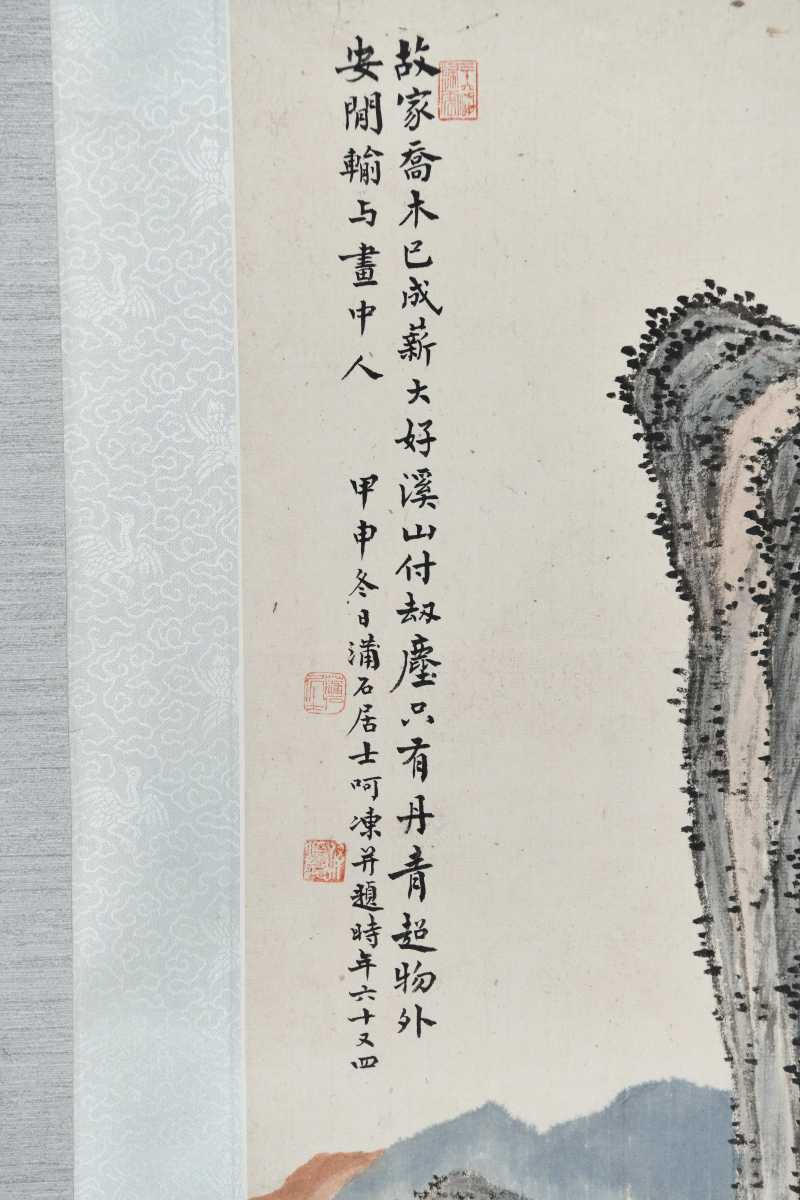 故家喬木已成薪大好溪山付劫塵只有丹青超物外
安閒輸与畫中人　甲申冬日蒲石居士呵凍并題時年六十又四